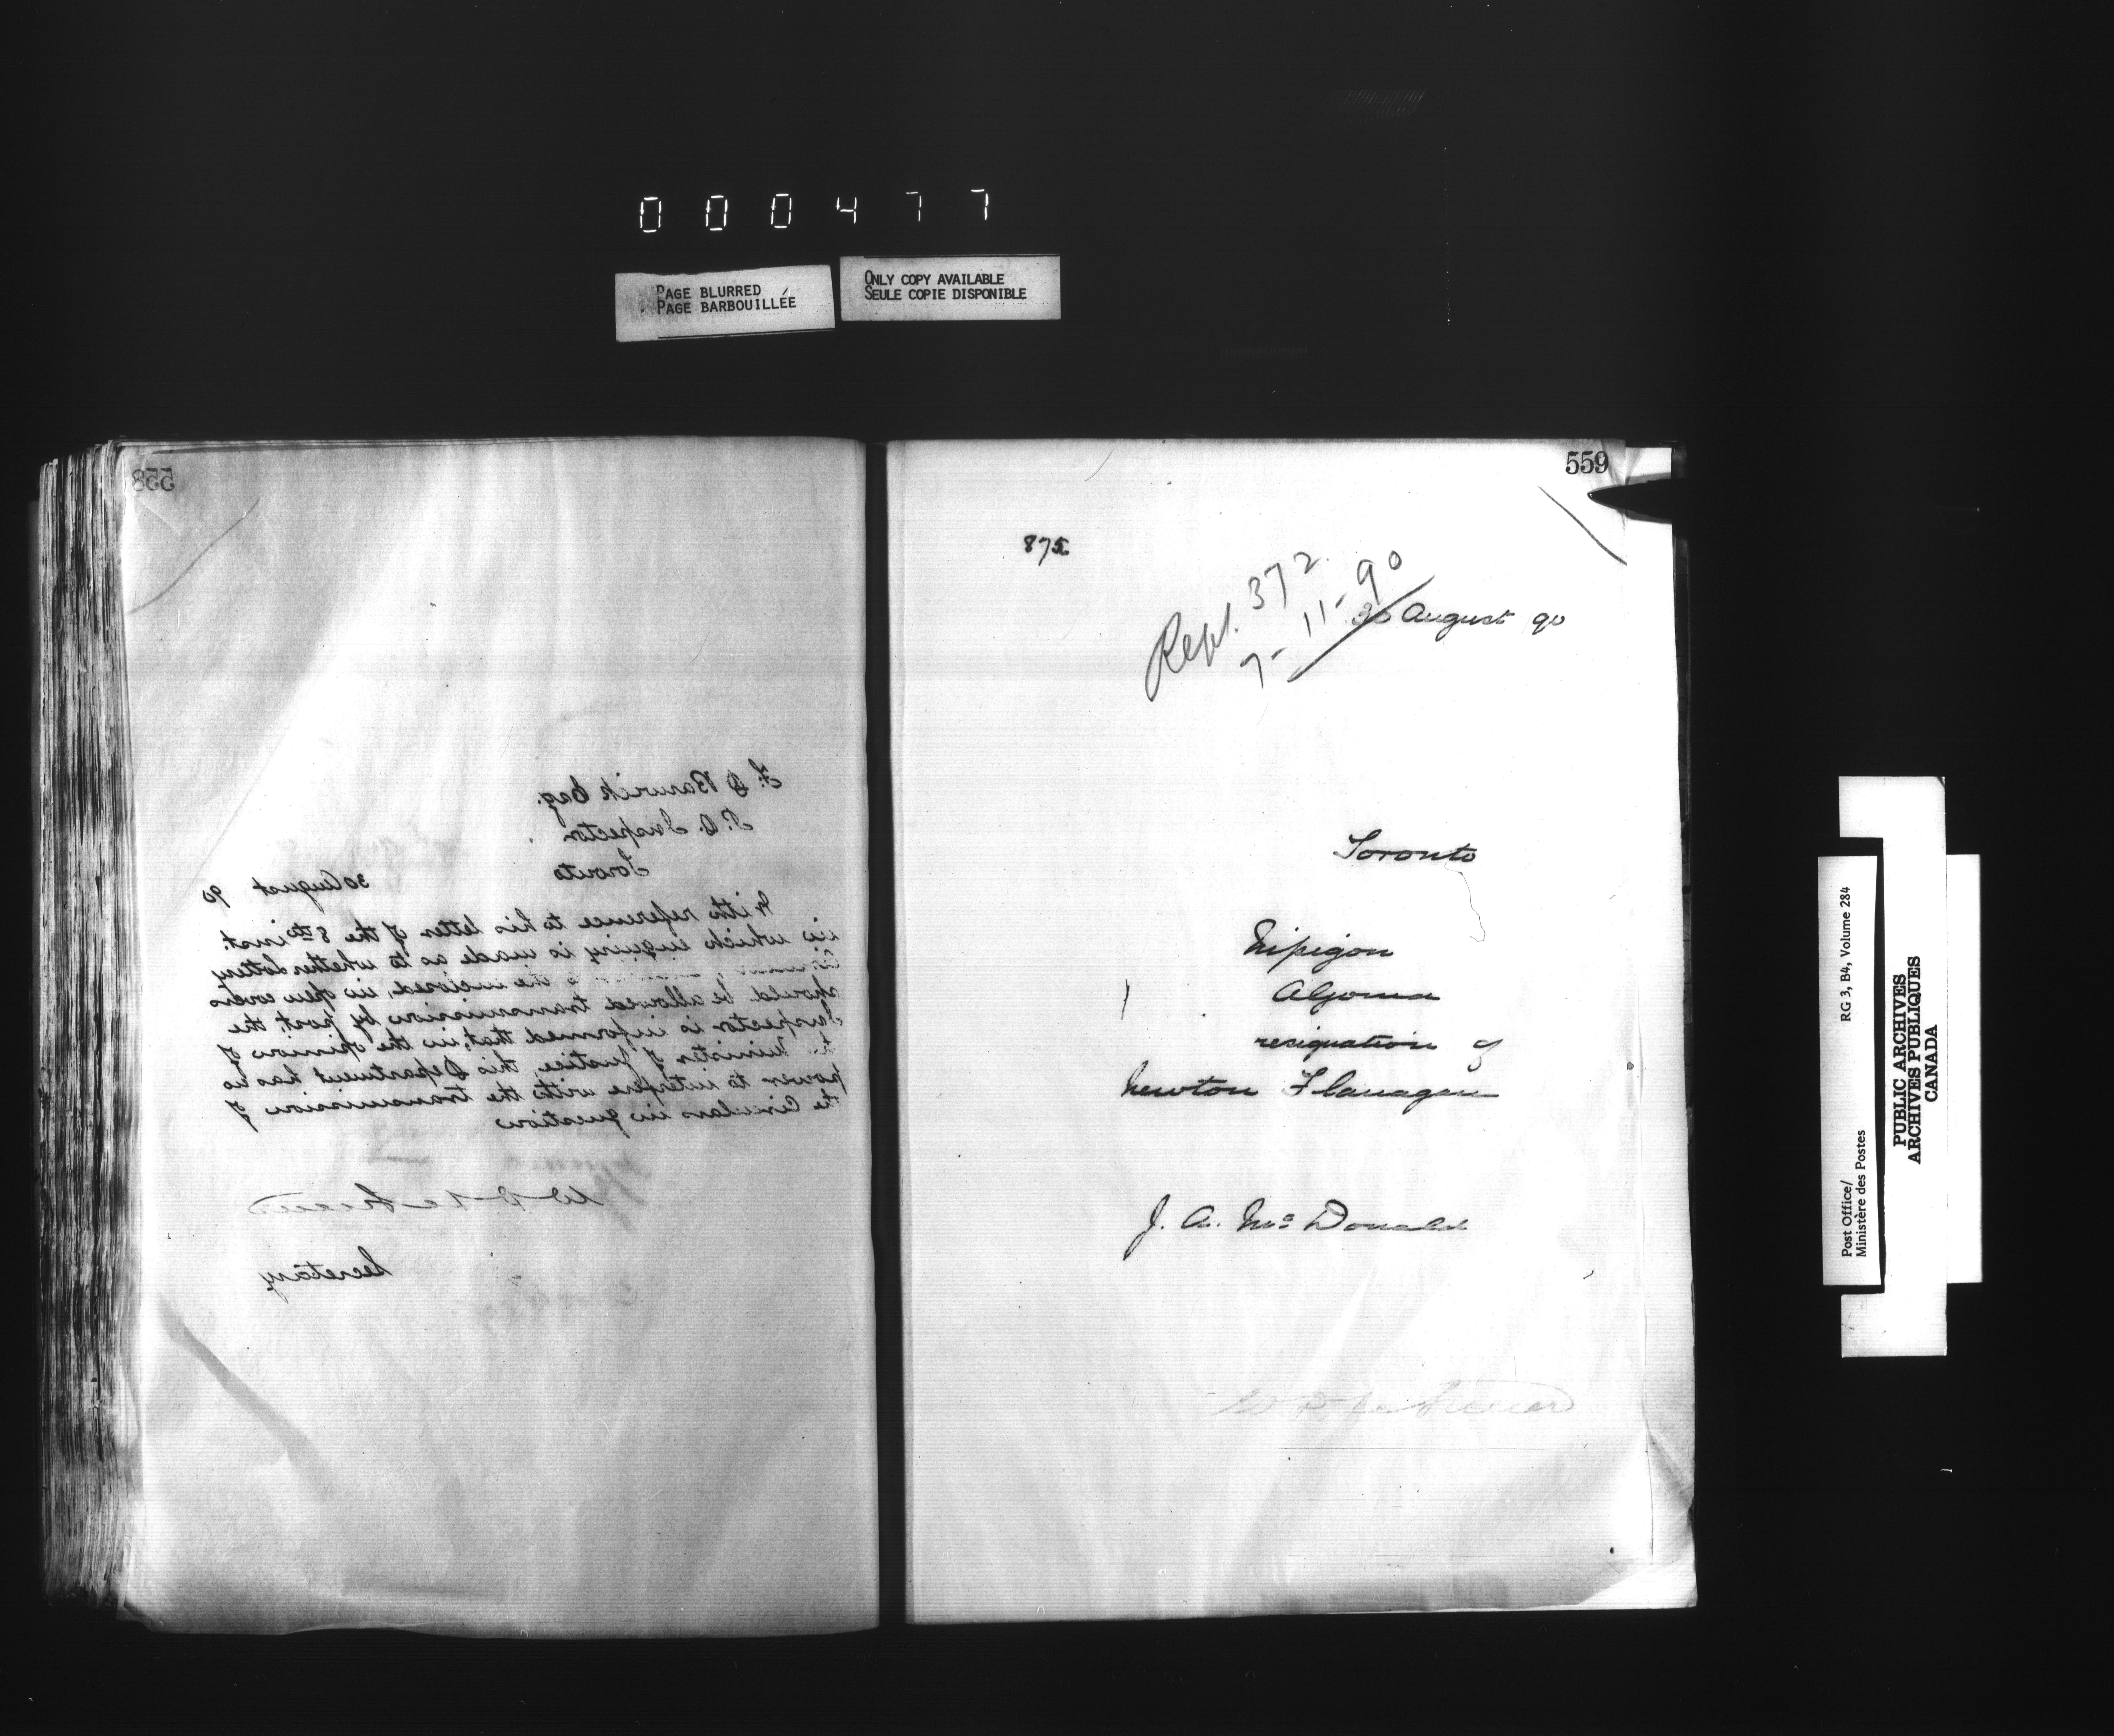 000477
PAGE BLURRED
PAGE BARBOUILLÉE
ONLY COPY AVAILABLE
SEULE COPIE DISPONIBLE
558
F. D Barwick Esq.
P. O. Inspector
Toronto
30 August 90
With reference to his letter of the 8th inst.
in which enquiry is made as to whether Lottery
the inclosed, in open covers
should be allowed transmission by post, the
Inspector is informed that, in the opinion of
Minister of Justice, this Department has no
power to interfere with the transmission of
the Circulars in question
Secretary
559
875
Rept. 372
7-11-90
30 August 90
Toronto
Nipigon
Algoma
resignation of
Newton Flanagan
J. A. McDonald
Post Office/
Ministère des Postes
RG 3, B4, Volume 284
PUBLIC ARCHIVES
ARCHIVES PUBLIQUES
CANADA